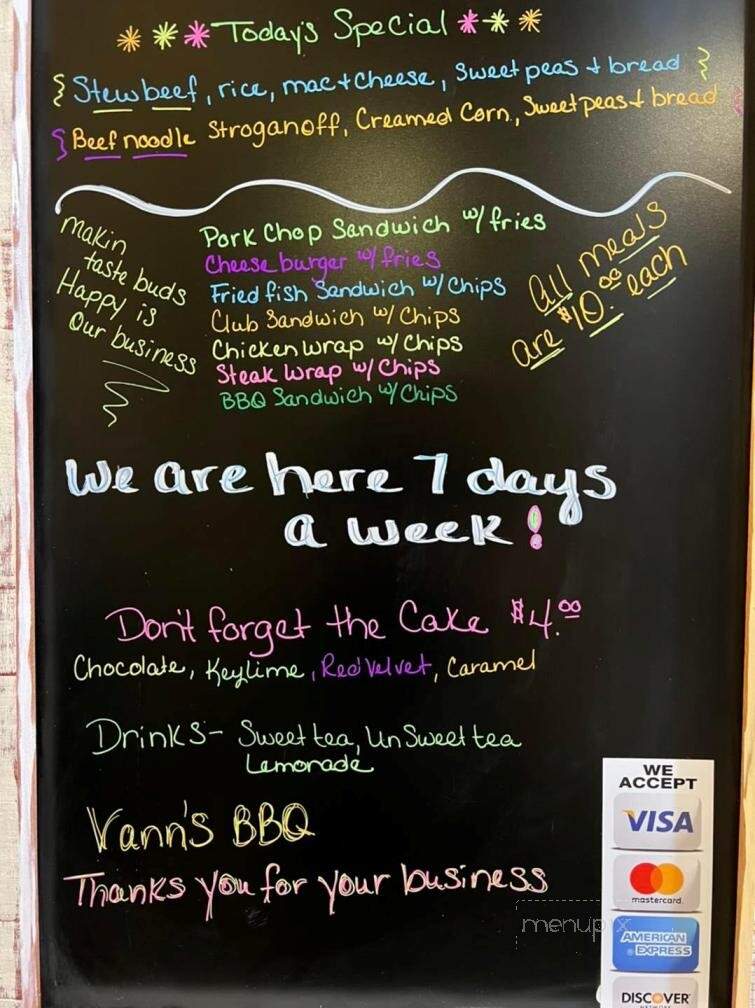 Today's Special
{ Stew beef, rice, mac + cheese, Sweet peas + bread }
{ Beef noodle Stroganoff, Creamed Corn, Sweet peas + bread
Makin
taste buds
Happy is
Our business
Pork Chop Sandwich w/ fries
Cheeseburger w/ fries
Fried fish Sandwich w/ Chips
Club Sandwich w/ Chips
Chicken wrap w/ Chips
Steak Wrap w/ Chips
BBQ Sandwich w/ Chips
All meals
are $10.00 each
We are here 7 days
a week!
Don't forget the Cake $4.00
Chocolate, Keylime, Red Velvet, Caramel
Drinks - Sweet tea, UnSweet tea
Lemonade
Vann's BBQ
Thanks you for your business
WE
ACCEPT
VISA
mastercard
AMERICAN
EXPRESS
DISCOVER
NETWORK
menupix